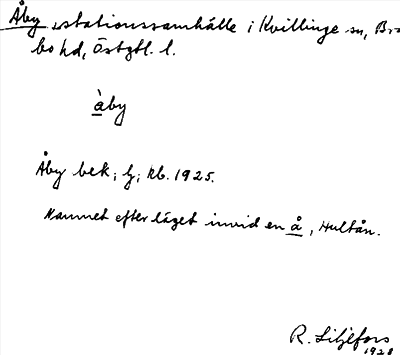 Åby, stationssamhälle i Kvillinge sn, Brå
bo hd, Östgtl. l.
àby
Åby bek; lj; kb. 1925.
Namnet efter läget invid en å, Hultån.
R. Liljefors
1928